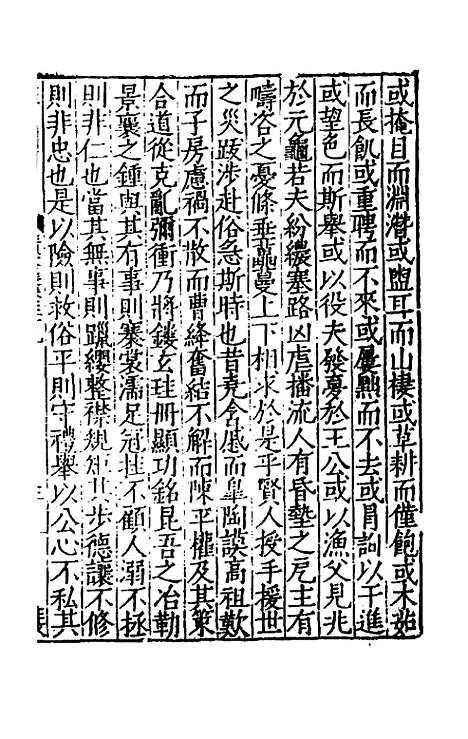 或掩目而淵潛或盥耳而山棲或草耕而僅飽或木茹
而長飢或重聘而不來或屢黜而不去或冒訽以干進
或望色而斯舉或以役夫發夢於王公或以漁父見兆
於元龜若夫紛繷塞路凶虐播流人有昏墊之戹主有
疇咨之憂條垂藟蔓上下相求於是乎賢人授手援世
之災跋涉赴俗急斯時也昔堯含戚而皐陶謨高祖歎
而子房慮禍不散而曹絳奮結不解而陳平權及其策
合道從克亂彌衝乃將鏤玄珪冊顯功銘昆吾之冶勒
景襄之鍾與其有事則褰裳濡足冠挂不顧人溺不拯
則非仁也當其無事則躐纓整襟規矩其步德讓不修
則非忠也是以險則救俗平則守禮舉以公心不私其